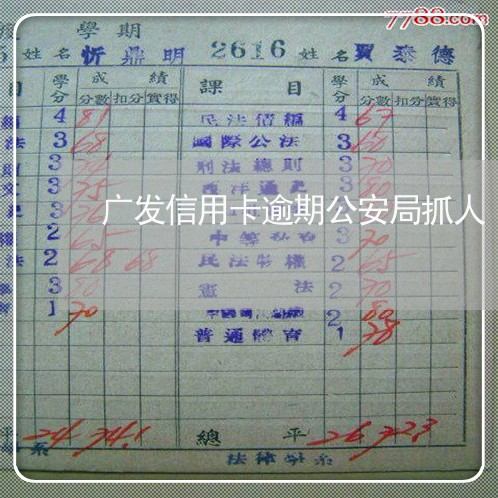 7788.com
學期
姓名 忻鼎明 2616 姓名 賈泰德
目 學分 成績 課目 學分 成績
分數 扣分 實得 分數 扣分 實得
4 81 民法債編 4 67
法 3 68 國際公法 3 60
3 刑法總則 3 70
3 75 西洋通史 3 80
广发信用卡逾期公安局抓人
2 65 3 70
法 2 68 68 民法物權 2 65
3 80 憲法 2 70
1 70 2 80
普通體育 1 78
平 24 74.1 總平 26 72.3
系 法律學系